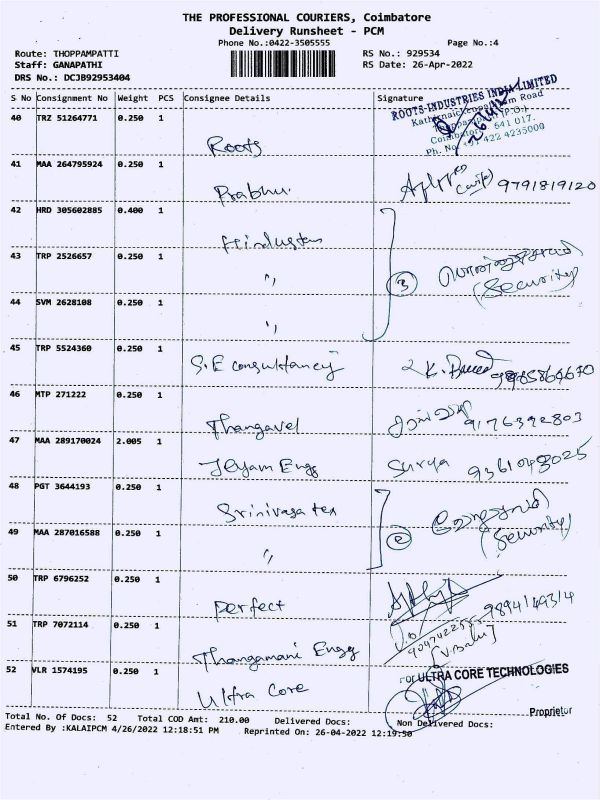 THE PROFESSIONAL COURIERS, Coimbatore
Delivery Runsheet - PCM
Phone No.:0422-3505555 Page No.:4
Route: THOPPAMPATTI RS No.: 929534
Staff: GANAPATHI RS Date: 26-Apr-2022
DRS No.: DCJB92953404
S No Consignment No Weight PCS Consignee Details Signature
ROOTS INDUSTRIES INDIA LIMITED
40 TRZ 51264771 0.250 1 Roots
Coimbatore - 641 017.
Ph. No. +91 422 4235000
41 MAA 264795924 0.250 1 Prabhu. 9791819120
42 HRD 305602885 0.400 1 Hindustan
43 TRP 2526657 0.250 1 " 3 (Security)
44 SVM 2628108 0.250 1 "
45 TRP 5524360 0.250 1 S.E consultancy
46 MTP 271222 0.250 1 Thangavel 9176392803
47 MAA 289170024 2.005 1 Jeyam Engg Surya
48 PGT 3644193 0.250 1 Srinivasa tex
49 MAA 287016588 0.250 1 " (Security)
50 TRP 6796252 0.250 1 Perfect
51 TRP 7072114 0.250 1 Thangamani Engg [V.Babu]
52 VLR 1574195 0.250 1 Ultra Core
For ULTRA CORE TECHNOLOGIES
Proprietor
Total No. Of Docs: 52 Total COD Amt: 210.00 Delivered Docs: Non Delivered Docs:
Entered By :KALAIPCM 4/26/2022 12:18:51 PM Reprinted On: 26-04-2022 12:19:50